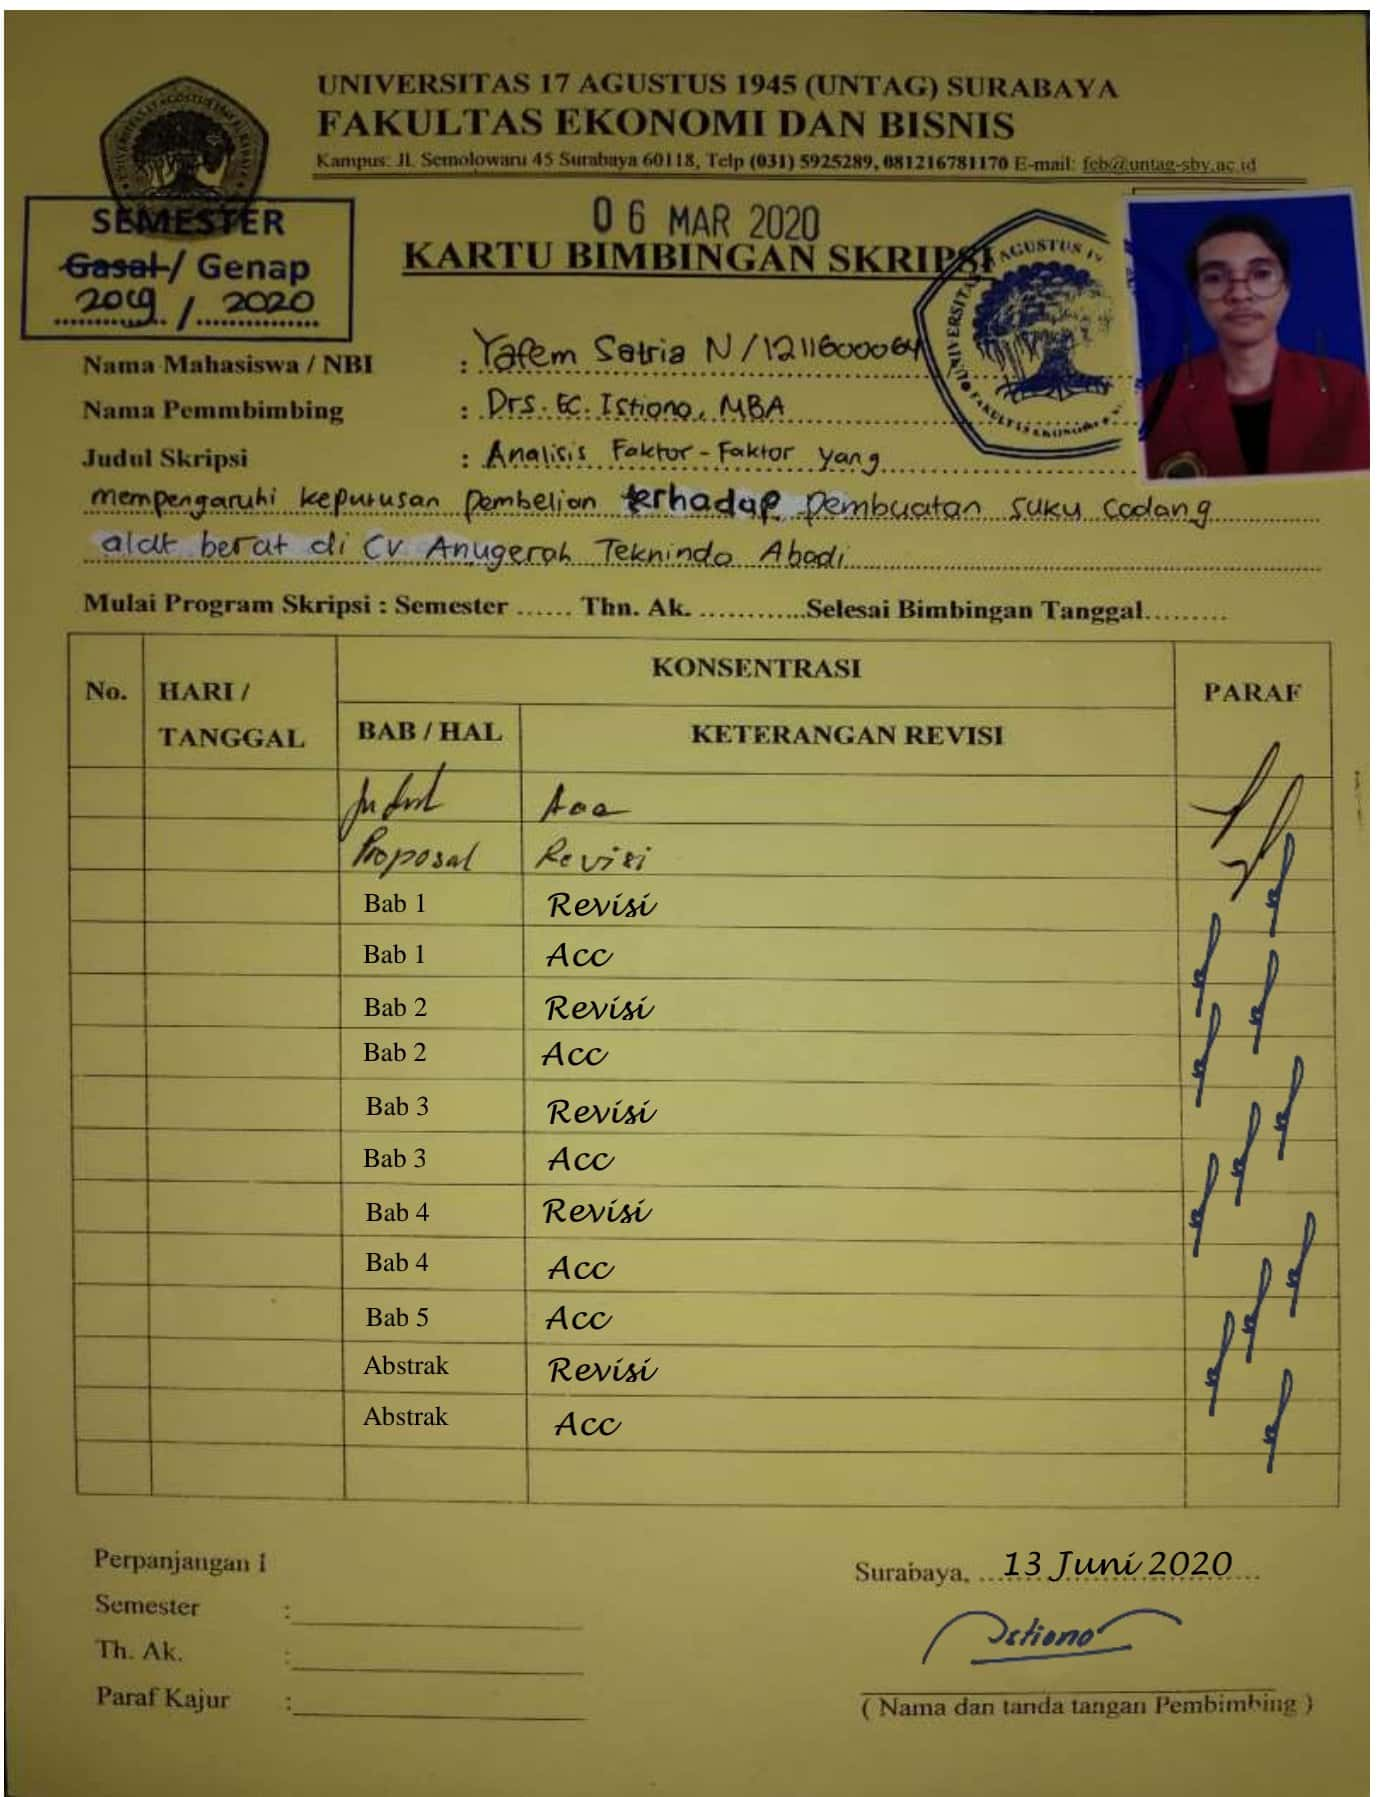 UNIVERSITAS 17 AGUSTUS 1945 (UNTAG) SURABAYA
FAKULTAS EKONOMI DAN BISNIS
Kampus: Jl. Semolowaru 45 Surabaya 60118, Telp (031) 5925289, 081216781170 E-mail: feb@untag-sby.ac.id
SEMESTER
Gasal / Genap
2019 / 2020
06 MAR 2020
KARTU BIMBINGAN SKRIPSI
Nama Mahasiswa / NBI : Yafem Satria N / 1211600064
Nama Pemmbimbing : Drs. EC. Istiono, MBA
Judul Skripsi : Analisis Faktor-Faktor yang
mempengaruhi keputusan pembelian terhadap pembuatan suku cadang
alat berat di CV Anugerah Teknindo Abadi
Mulai Program Skripsi : Semester ...... Thn. Ak. ............Selesai Bimbingan Tanggal.........
No. HARI / TANGGAL KONSENTRASI PARAF
BAB / HAL KETERANGAN REVISI
Judul Acc
Proposal Revisi
Bab 1 Revisi
Bab 1 Acc
Bab 2 Revisi
Bab 2 Acc
Bab 3 Revisi
Bab 3 Acc
Bab 4 Revisi
Bab 4 Acc
Bab 5 Acc
Abstrak Revisi
Abstrak Acc
Perpanjangan I
Semester :
Th. Ak. :
Paraf Kajur :
Surabaya, 13 Juni 2020
Istiono
( Nama dan tanda tangan Pembimbing )